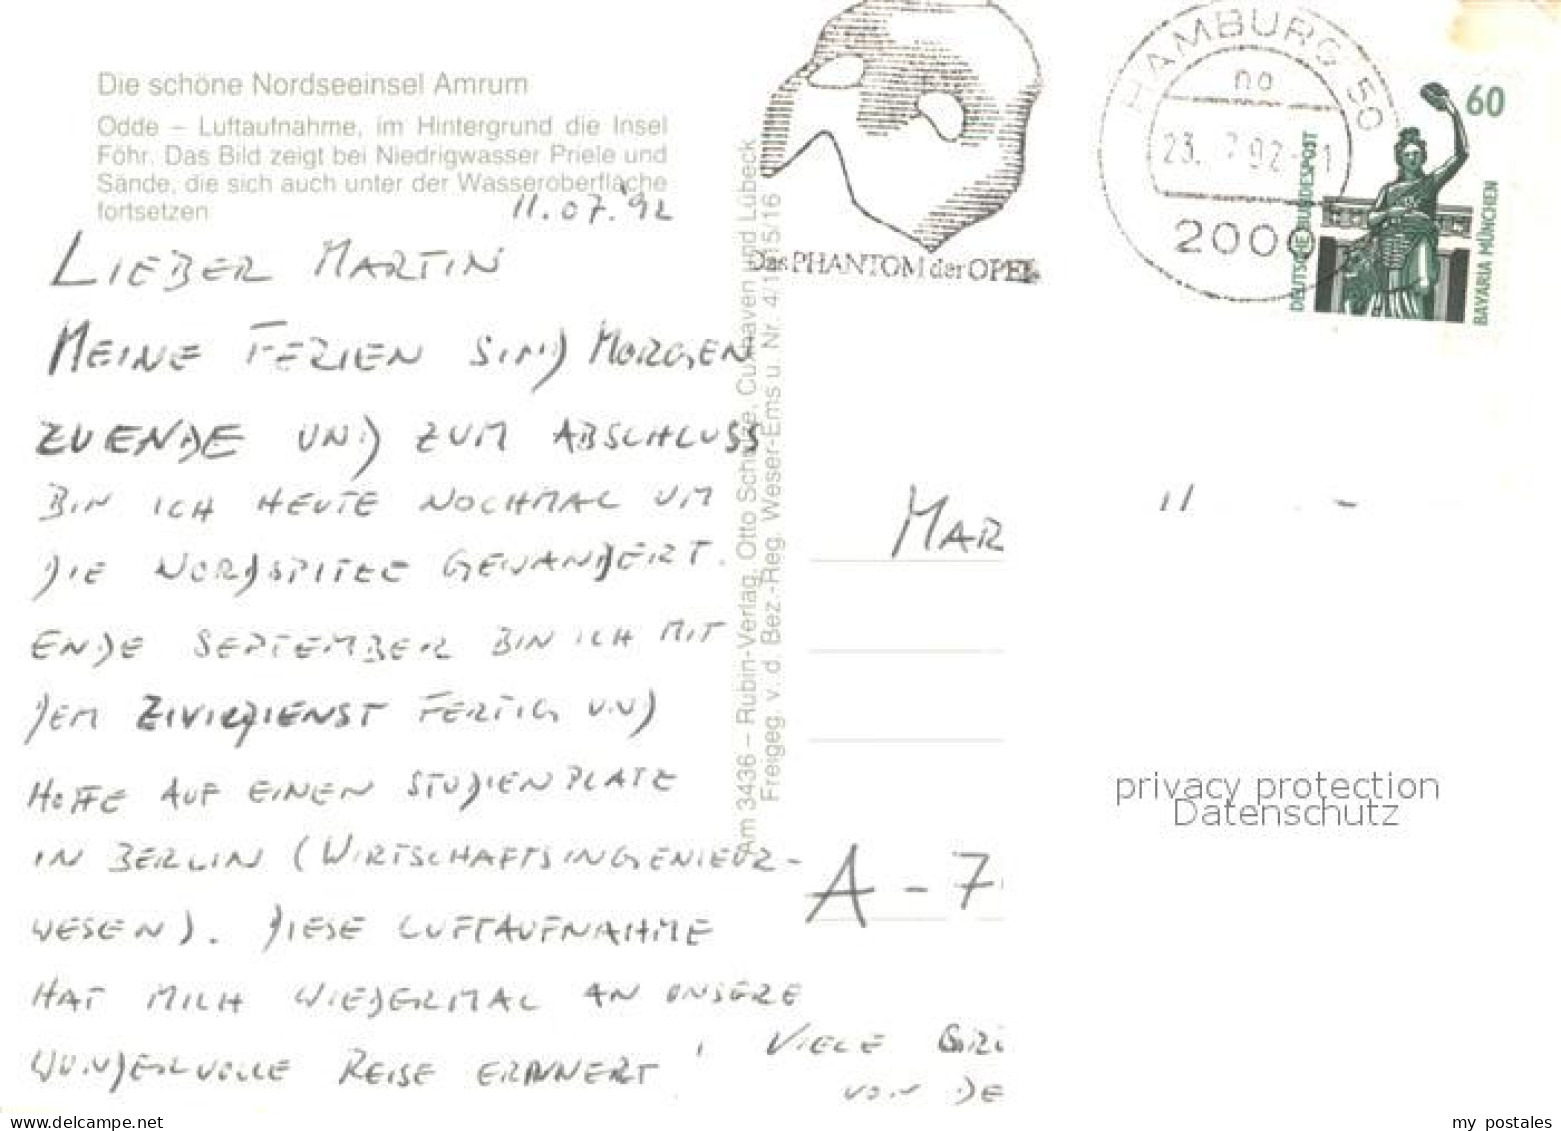 Die schöne Nordseeinsel Amrum
Odde – Luftaufnahme, im Hintergrund die Insel
Föhr. Das Bild zeigt bei Niedrigwasser Priele und
Sände, die sich auch unter der Wasseroberfläche
fortsetzen
11.07.'92
LIEBER MARTIN
MEINE FERIEN SIND MORGEN
ZUENDE UND ZUM ABSCHLUSS
BIN ICH HEUTE NOCHMAL UM
DIE NORDSPITZE GEWANDERT.
ENDE SEPTEMBER BIN ICH MIT
DEM ZIVILDIENST FERTIG UND
HOFFE AUF EINEN STUDIENPLATZ
IN BERLIN (WIRTSCHAFTSINGENIEUR-
WESEN). DIESE LUFTAUFNAHME
HAT MICH WIEDERMAL AN UNSERE
WUNDERVOLLE REISE ERINNERT!
VIELE GRÜ
VON DE
Am 3436 – Rubin-Verlag, Otto Schulze, Cuxhaven und Lübeck
Freigeg. v. d. Bez.-Reg. Weser-Ems u. Nr. 4/115/16
Das PHANTOM der OPER
HAMBURG 50
no
23. 92
2000
60
DEUTSCHE BUNDESPOST
BAVARIA MÜNCHEN
MAR
A - 7
privacy protection
Datenschutz
www.delcampe.net
my_postales